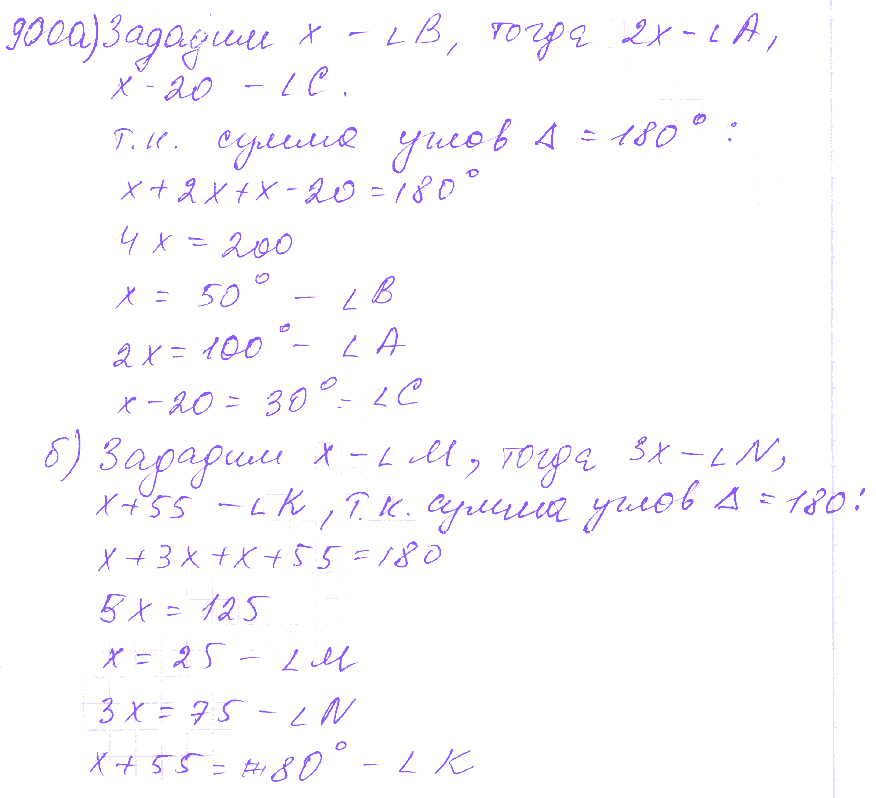 900а) Зададим x - ∠B, тогда 2x - ∠A,
x - 20 - ∠C.
т.к. сумма углов Δ = 180° :
x + 2x + x - 20 = 180°
4x = 200
x = 50° - ∠B
2x = 100° - ∠A
x - 20 = 30° - ∠C
б) Зададим x - ∠M, тогда 3x - ∠N,
x + 55 - ∠K, т.к. сумма углов Δ = 180:
x + 3x + x + 55 = 180
5x = 125
x = 25 - ∠M
3x = 75 - ∠N
x + 55 = 80° - ∠K